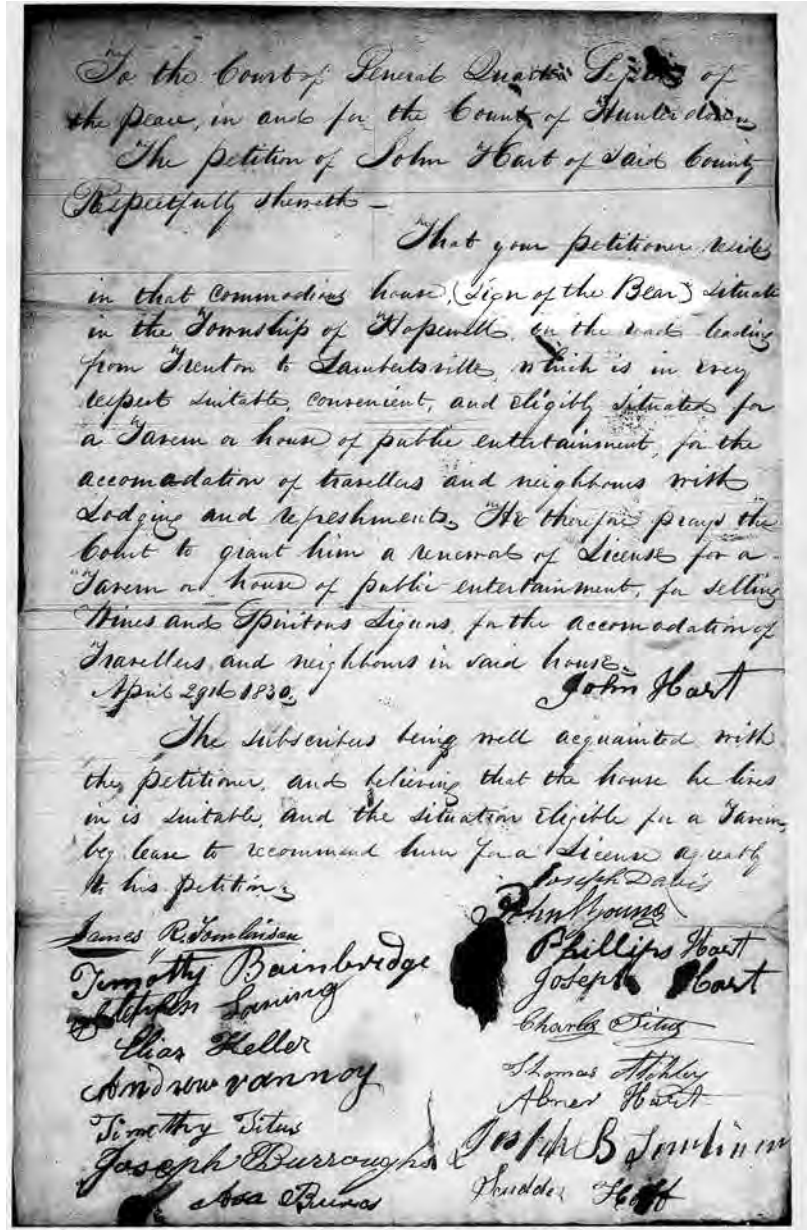 To the Court of General Quarter Sessions of
the peace, in and for the County of Hunterdon
The petition of John Hart of said County
Respectfully sheweth —
That your petitioner resides
in that commodious house, (Sign of the Bear) situate
in the Township of Hopewell, on the road leading
from Trenton to Lambertsville, which is in every
respect suitable, convenient, and eligibly situated for
a Tavern or house of public entertainment, for the
accomadation of travellers and neighbours with
Lodging and refreshments. He therefore prays the
Court to grant him a renewal of License for a
Tavern or house of public entertainment, for selling
Wines and Spiritous Liquors, for the accomodation of
Travellers, and neighbours in said house.
April 29th 1830.
John Hart
The subscribers being well acquainted with
the petitioner, and believing that the house he lives
in is suitable, and the situation eligible for a Tavern,
beg leave to recommend him for a License agreably
to his petition.
Joseph Davis
John Young
James R. Tomlinson
Phillips Hart
Timothy Bainbridge
Joseph Hart
Stephen Laning
Charles Titus
Elias Keller
Thomas Atchley
Andrew vannoy
Abner Hart
Timothy Titus
Joseph B Tomlinson
Joseph Burroughs
Scudder Hoff
Asa